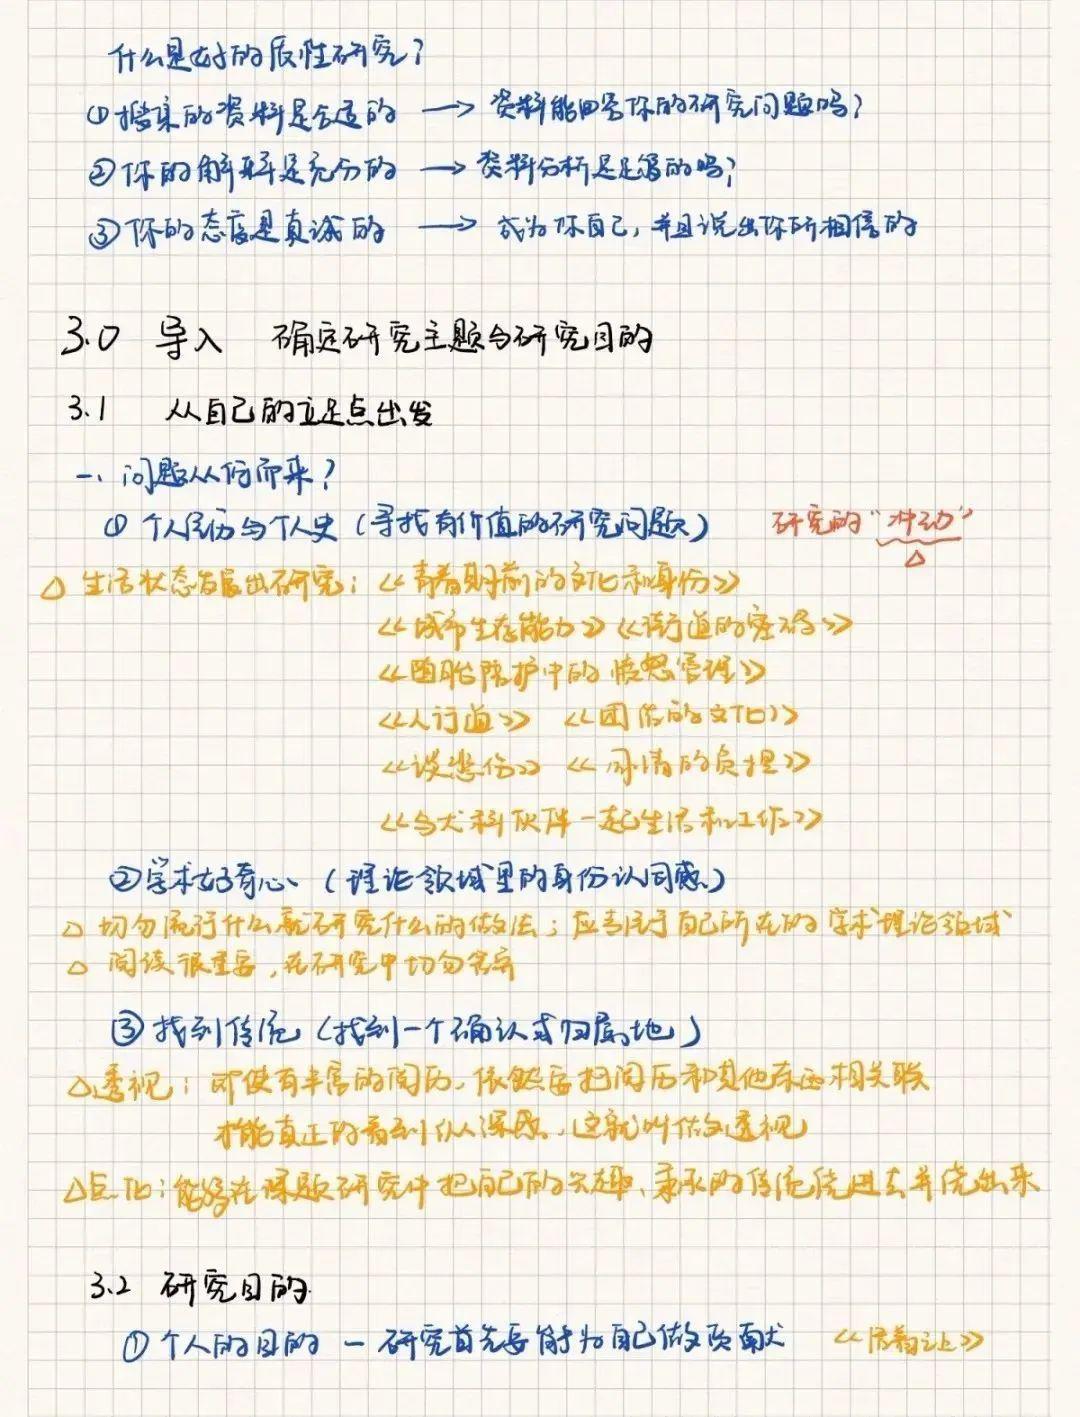 什么是好的质性研究？
①搜集的资料是合适的 → 资料能回答你的研究问题吗？
②你的解释是充分的 → 资料分析是足够的吗？
③你的态度是真诚的 → 成为你自己，并且说出你所相信的
3.0 导入 确定研究主题与研究目的
3.1 从自己的立足点出发
一、问题从何而来？
① 个人经历与个人史（寻找有价值的研究问题） 研究的“冲动”
△ 生活状态发展出研究：《青春期前的文化和身份》
《城市生存能力》《街道的密码》
《堕胎陪护中的愤怒管理》
《人行道》 《团伙的文化》
《谈悲伤》 《同情的负担》
《与犬科伙伴一起生活和工作》
②学术好奇心（理论领域里的身份认同感）
△ 切勿流行什么就研究什么的做法；应当活于自己所在的学术理论领域
△ 阅读很重要，在研究中切勿舍弃
③ 找到传统（找到一个确认或归属地）
△透视：即使有丰富的阅历，依然要把阅历和其他东西相关联
才能真正的看到纵深感，这就叫做透视
△ 能够在课题研究中把自己的兴趣、秉承的传统绕进去并绕出来
3.2 研究目的
① 个人的目的 — 研究首先要能为自己做贡献 《活着之上》